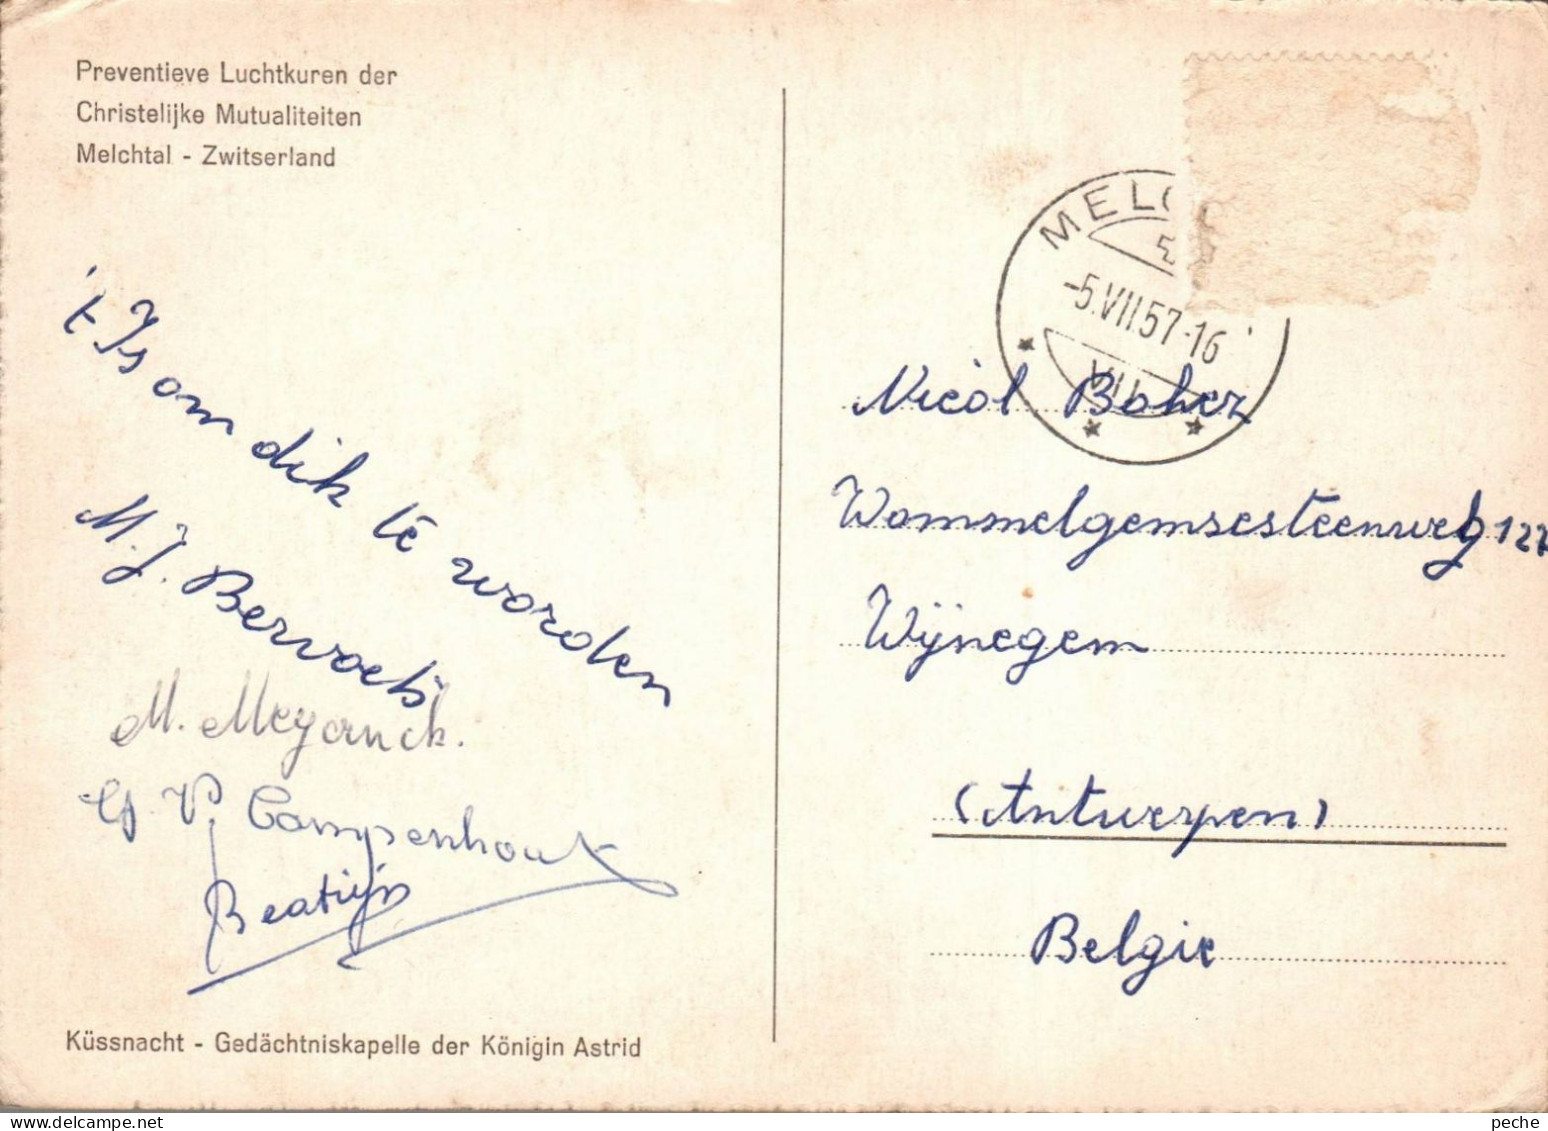 Preventieve Luchtkuren der
Christelijke Mutualiteiten
Melchtal - Zwitserland
't Is om dik te worden
M.J. Bervoets
M. Meyanck.
V. Campenhout
Beatrijs
Küssnacht - Gedächtniskapelle der Königin Astrid
MELC
-5.VII.57-16
Nicòl Boher
Wommelgemsesteenweg 127
Wijnegem
(Antwerpen)
Belgie
peche